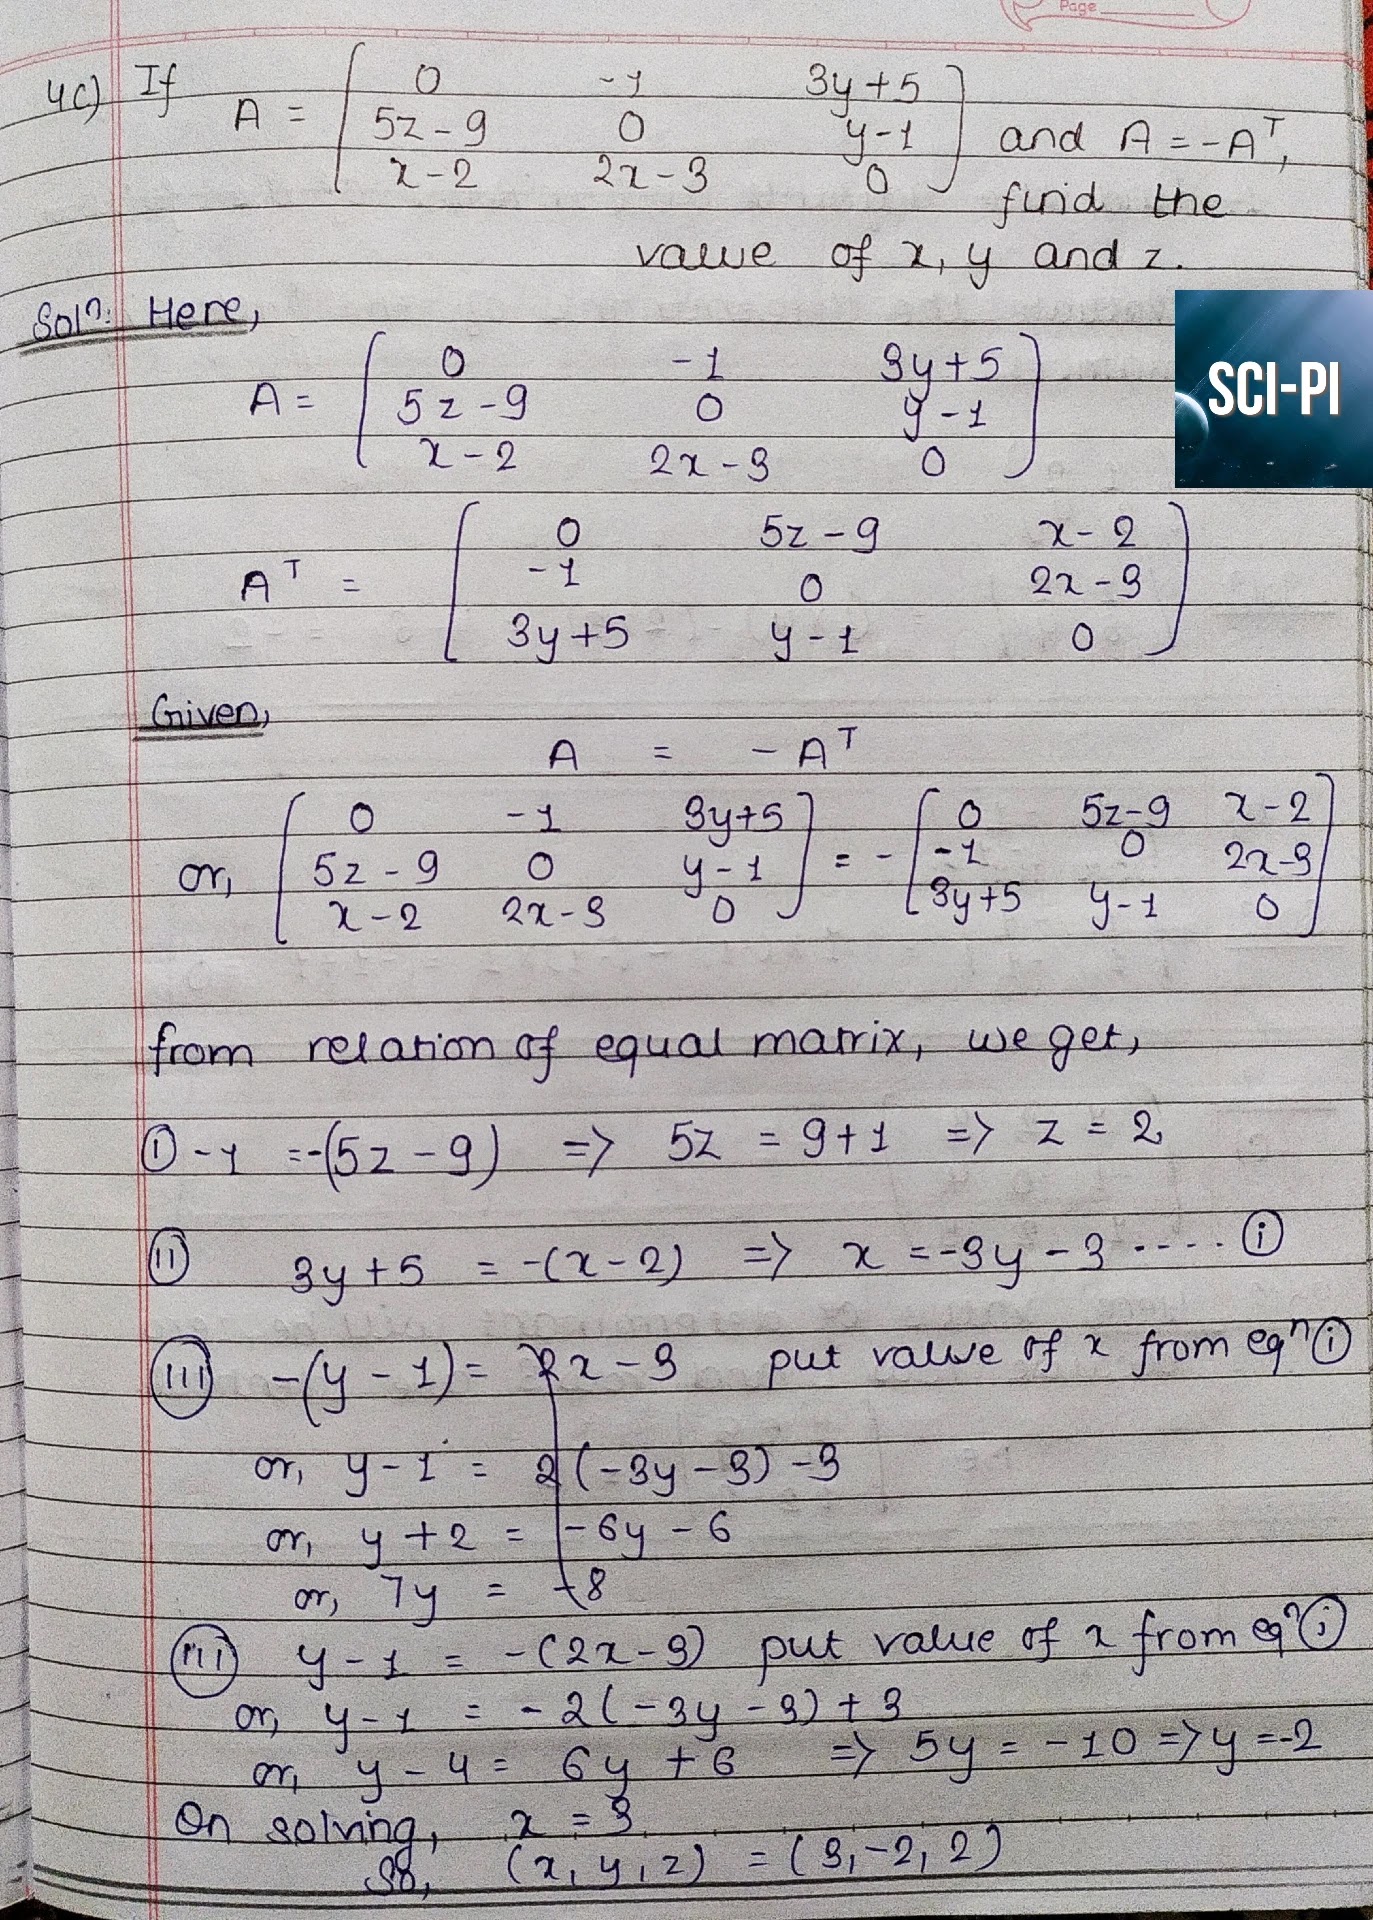 Page
4c) If A = [ 0 -1 3y+5
5z-9 0 y-1
x-2 2x-3 0 ] and A = -Aᵀ,
find the
value of x, y and z.
Solⁿ: Here,
A = [ 0 -1 3y+5
5z-9 0 y-1
x-2 2x-3 0 ]
SCI-PI
Aᵀ = [ 0 5z-9 x-2
-1 0 2x-3
3y+5 y-1 0 ]
Given,
A = -Aᵀ
or, [ 0 -1 3y+5 ] = - [ 0 5z-9 x-2
5z-9 0 y-1 -1 0 2x-3
x-2 2x-3 0 3y+5 y-1 0 ]
from relation of equal matrix, we get,
(i) -1 = -(5z-9) => 5z = 9+1 => z = 2
(ii) 3y+5 = -(x-2) => x = -3y-3 ..... (i)
(iii) -(y-1) = 2x-3 put value of x from eqⁿ (i)
or, y-1 = 2(-3y-3)-3
or, y+2 = -6y-6
or, 7y = -8
(iii) y-1 = -(2x-3) put value of x from eqⁿ (i)
or, y-1 = -2(-3y-3)+3
or, y-4 = 6y+6 => 5y = -10 => y = -2
On solving, x = 3
So, (x, y, z) = (3, -2, 2)